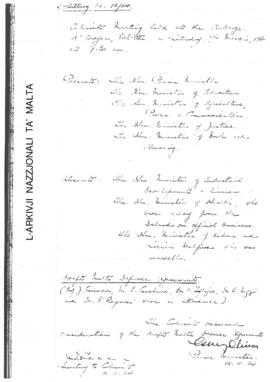 Meeting No. 10/64
Cabinet Meeting held at the Auberge
d'Aragon, Valletta on Saturday, 14th March, 1964
at 9.30 am
Present: The Hon. Prime Minister
The Hon. Minister of Education
The Hon. Minister of Agriculture,
Power & Communications.
The Hon. Minister of Justice.
The Hon. Minister of Works and
Housing.
Absent: The Hon. Minister of Industrial
Development & Tourism.
The Hon. Minister of Health, who
were away from the
Island on official business.
The Hon. Minister of Labour and
Social Welfare who was
unwell.
Malta Defence Agreement
were in attendance)
The Cabinet resumed
consideration of the draft Malta Defence Agreement
Prime Minister.
Secretary to Cabinet
L-ARKIVJI NAZZJONALI TA' MALTA